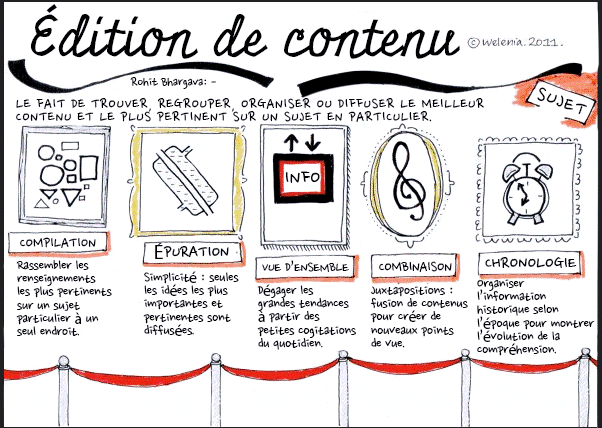 Édition de contenu
© Welenia. 2011.
Rohit Bhargava: -
LE FAIT DE TROUVER, REGROUPER, ORGANISER OU DIFFUSER LE MEILLEUR
CONTENU ET LE PLUS PERTINENT SUR UN SUJET EN PARTICULIER.
SUJET
INFO
COMPILATION
Rassembler les
renseignements
les plus pertinents
sur un sujet
particulier à un
seul endroit.
ÉPURATION
Simplicité : seules
les idées les plus
importantes et
pertinentes sont
diffusées.
VUE D'ENSEMBLE
Dégager les
grandes tendances
à partir des
petites cogitations
du quotidien.
COMBINAISON
Juxtapositions :
fusion de contenus
pour créer de
nouveaux points
de vue.
CHRONOLOGIE
Organiser
l'information
historique selon
l'époque pour montrer
l'évolution de la
compréhension.